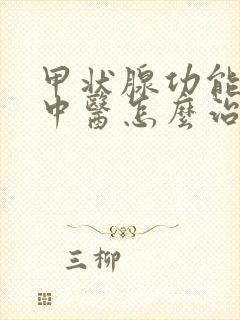 甲状腺功能
中醫怎麼治
三柳